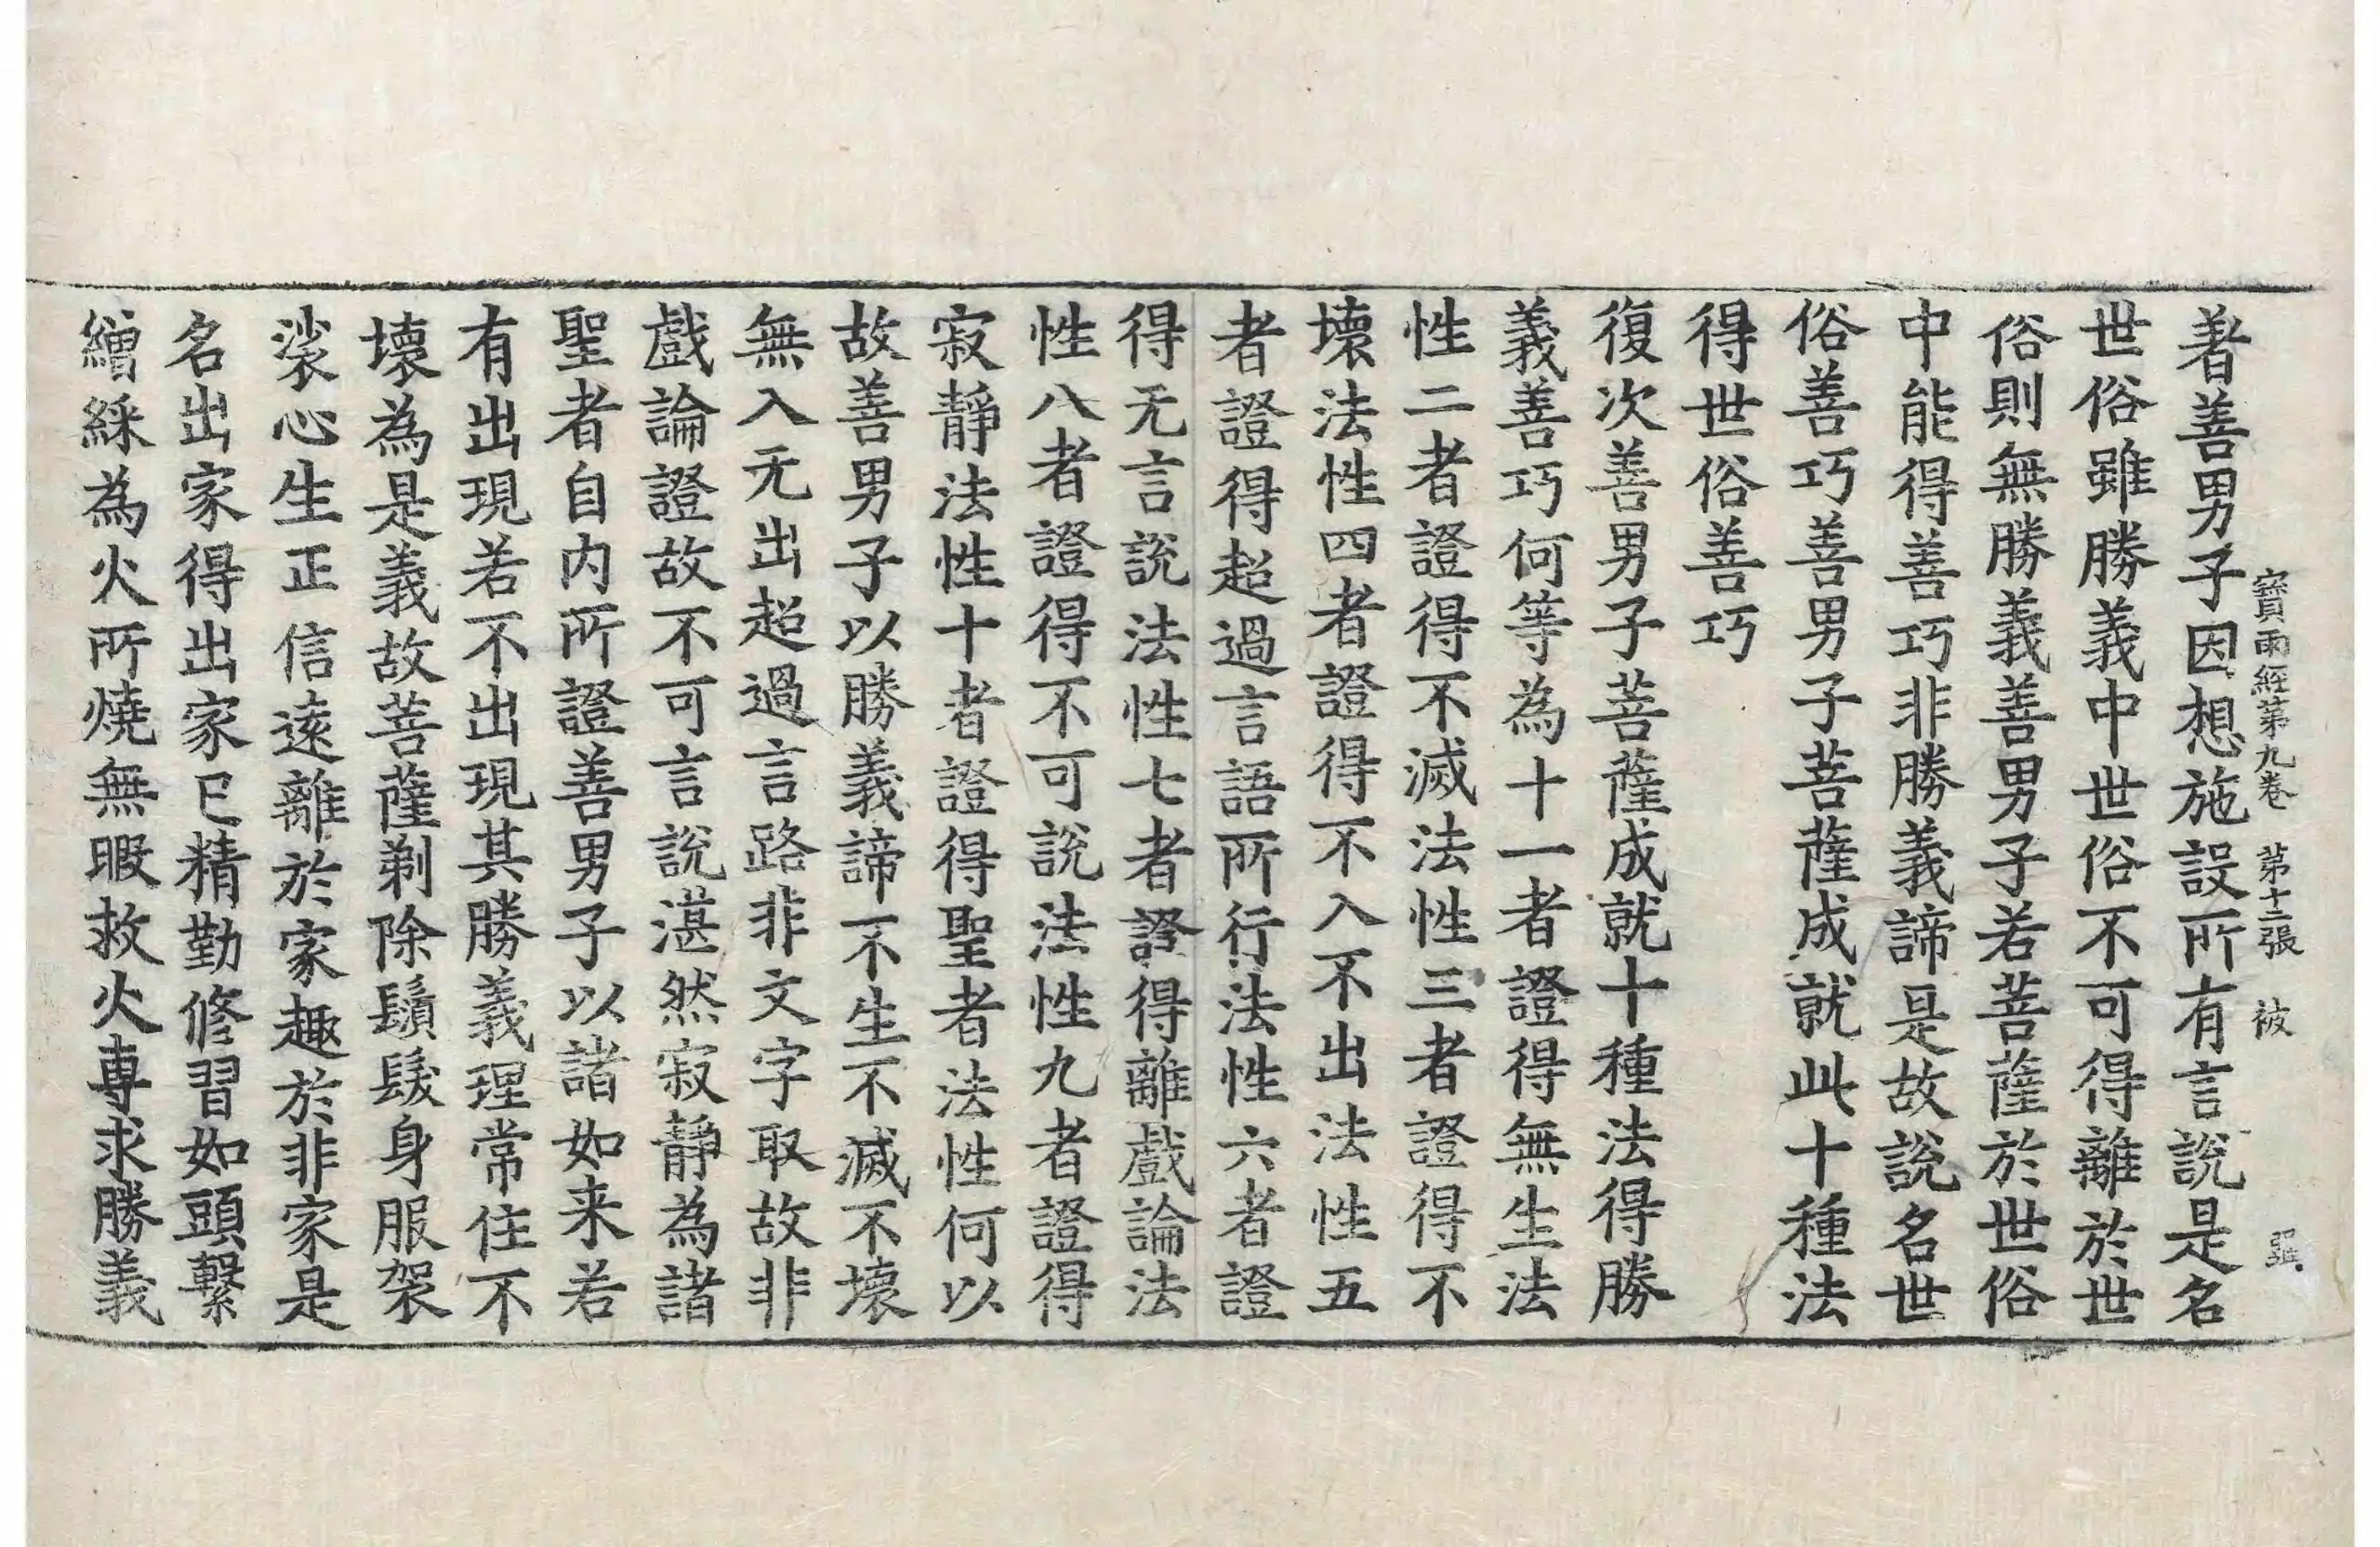 寶雨經第九卷　第十二張　被
著善男子因想施設所有言說是名
世俗雖勝義中世俗不可得離於世
俗則無勝義善男子若菩薩於世俗
中能得善巧非勝義諦是故說名世
俗善巧善男子菩薩成就此十種法
得世俗善巧
復次善男子菩薩成就十種法得勝
義善巧何等為十一者證得無生法
性二者證得不滅法性三者證得不
壞法性四者證得不入不出法性五
者證得超過言語所行法性六者證
得无言說法性七者證得離戲論法
性八者證得不可說法性九者證得
寂靜法性十者證得聖者法性何以
故善男子以勝義諦不生不滅不壞
無入无出超過言路非文字取故非
戲論證故不可言說湛然寂靜為諸
聖者自内所證善男子以諸如来若
有出現若不出現其勝義理常住不
壞為是義故菩薩剃除鬚髮身服袈
裟心生正信遠離於家趣於非家是
名出家得出家已精勤修習如頭繫
繒綵為火所燒無暇救火專求勝義